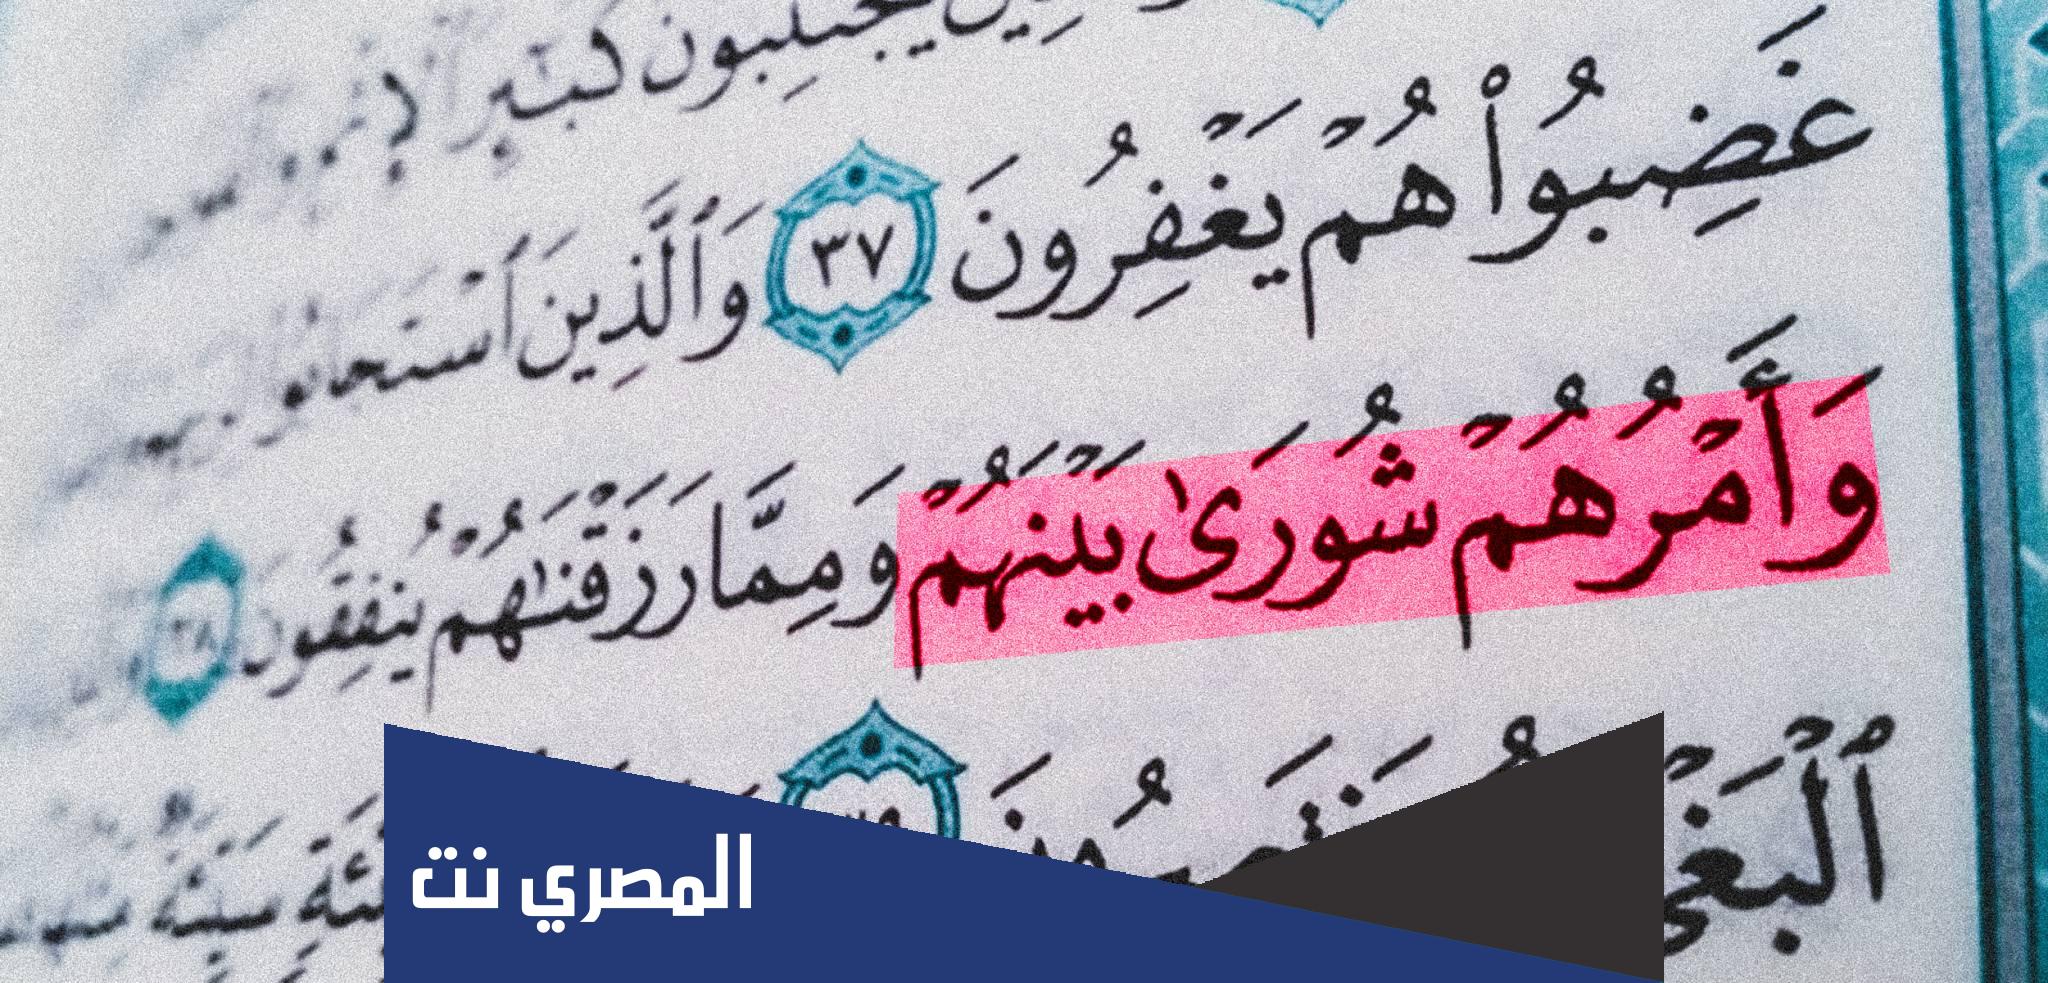 يَجْتَنِبُونَ كَبَٰٓئِرَ
غَضِبُوا۟ هُمْ يَغْفِرُونَ ٣٧ وَٱلَّذِينَ ٱسْتَجَابُوا۟
وَأَمْرُهُمْ شُورَىٰ بَيْنَهُمْ وَمِمَّا رَزَقْنَٰهُمْ يُنفِقُونَ ٣٨
ٱلْبَغْىُ
سَيِّئَةٍ سَيِّئَةٌ
المصري نت